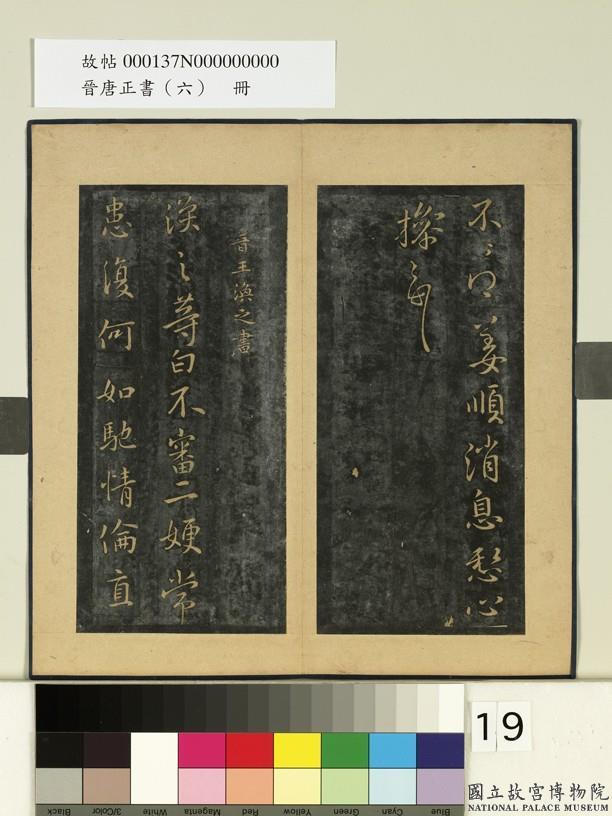 故帖 000137N000000000
晉唐正書（六）　冊
不得姜順消息愁心
操之
晉王渙之書
渙之等白不審二嫂常
患復何如馳情倫直
19
Blue Cyan Green Yellow Red Magenta White 3/Color Black
國立故宮博物院
NATIONAL PALACE MUSEUM